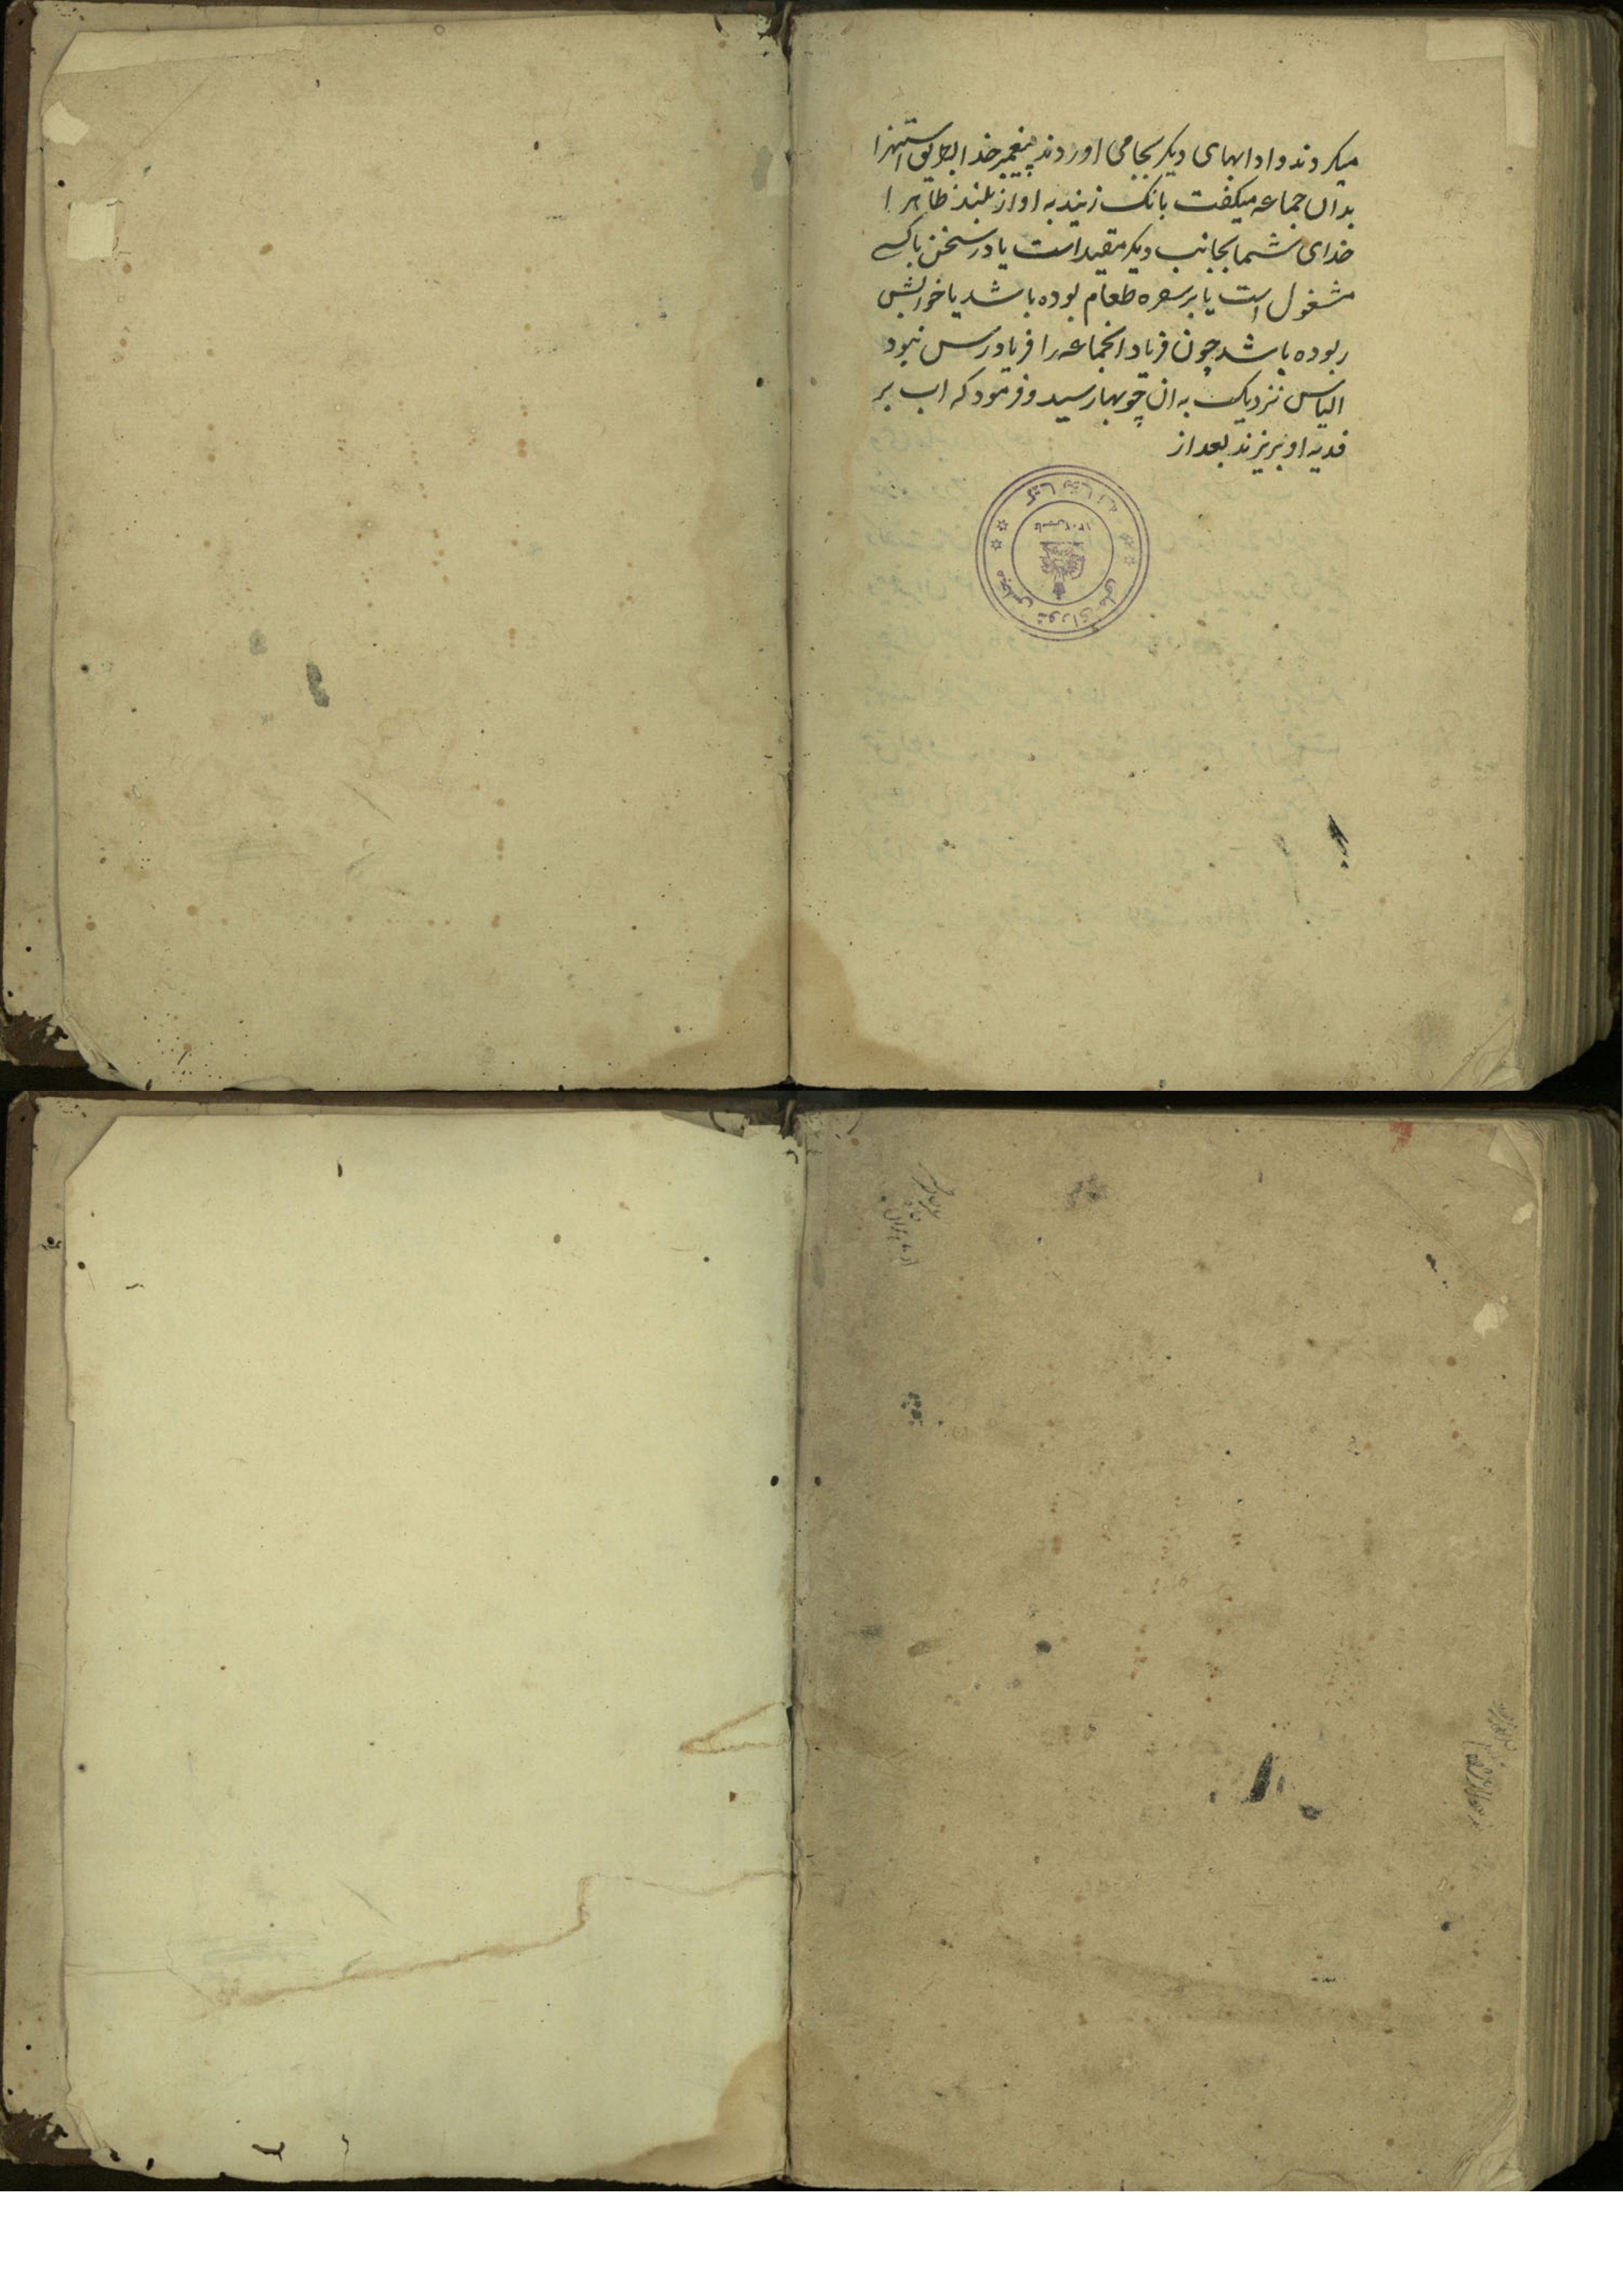 میکردند و ادابهای دیکر بجا می اوردند پیغمبر خدا بطریق استهزا
بدان جماعه میکفت بانک زنید به اواز بلند ظاهرا
خدای شما بجانب دیکر مقید است یا در سخن باکسے
مشغول است یا بر سفره طعام بوده باشد یا خوابش
ربوده باشد چون فریاد انجماعه را فریادرس نبود
الیاس نزدیک به ان چوبها رسید و فرمود که اب بر
فدیه او بریزند بعد از
کتابخانه
مجلس شورای ملی